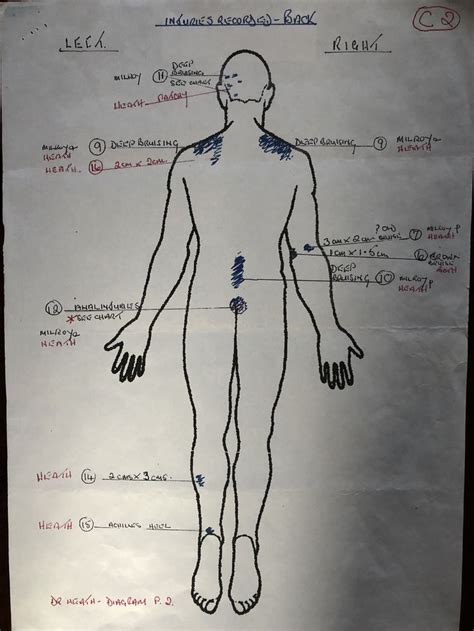 INJURIES RECORDED - BACK
C2
LEFT
RIGHT
MILROY 11 DEEP BRUISING SEE CHART
HEATH
MILROY 9 DEEP BRUISING
HEATH
DEEP BRUISING 9 MILROY
HEATH
HEATH. 16 2CM X 2CM.
? OLD
3CM X 2CM BRUISE 7 MILROY P
HEATH
1CM X 1.5CM 6 BROWN
BRUISE
HEATH
DEEP
BRUISING 10 MILROY P
HEATH
12
* SEE CHART
MILROY
HEATH
HEATH 14 2CMS X 3CMS.
HEATH 15 ACHILES HEEL
DR HEATH - DIAGRAM P. 2.